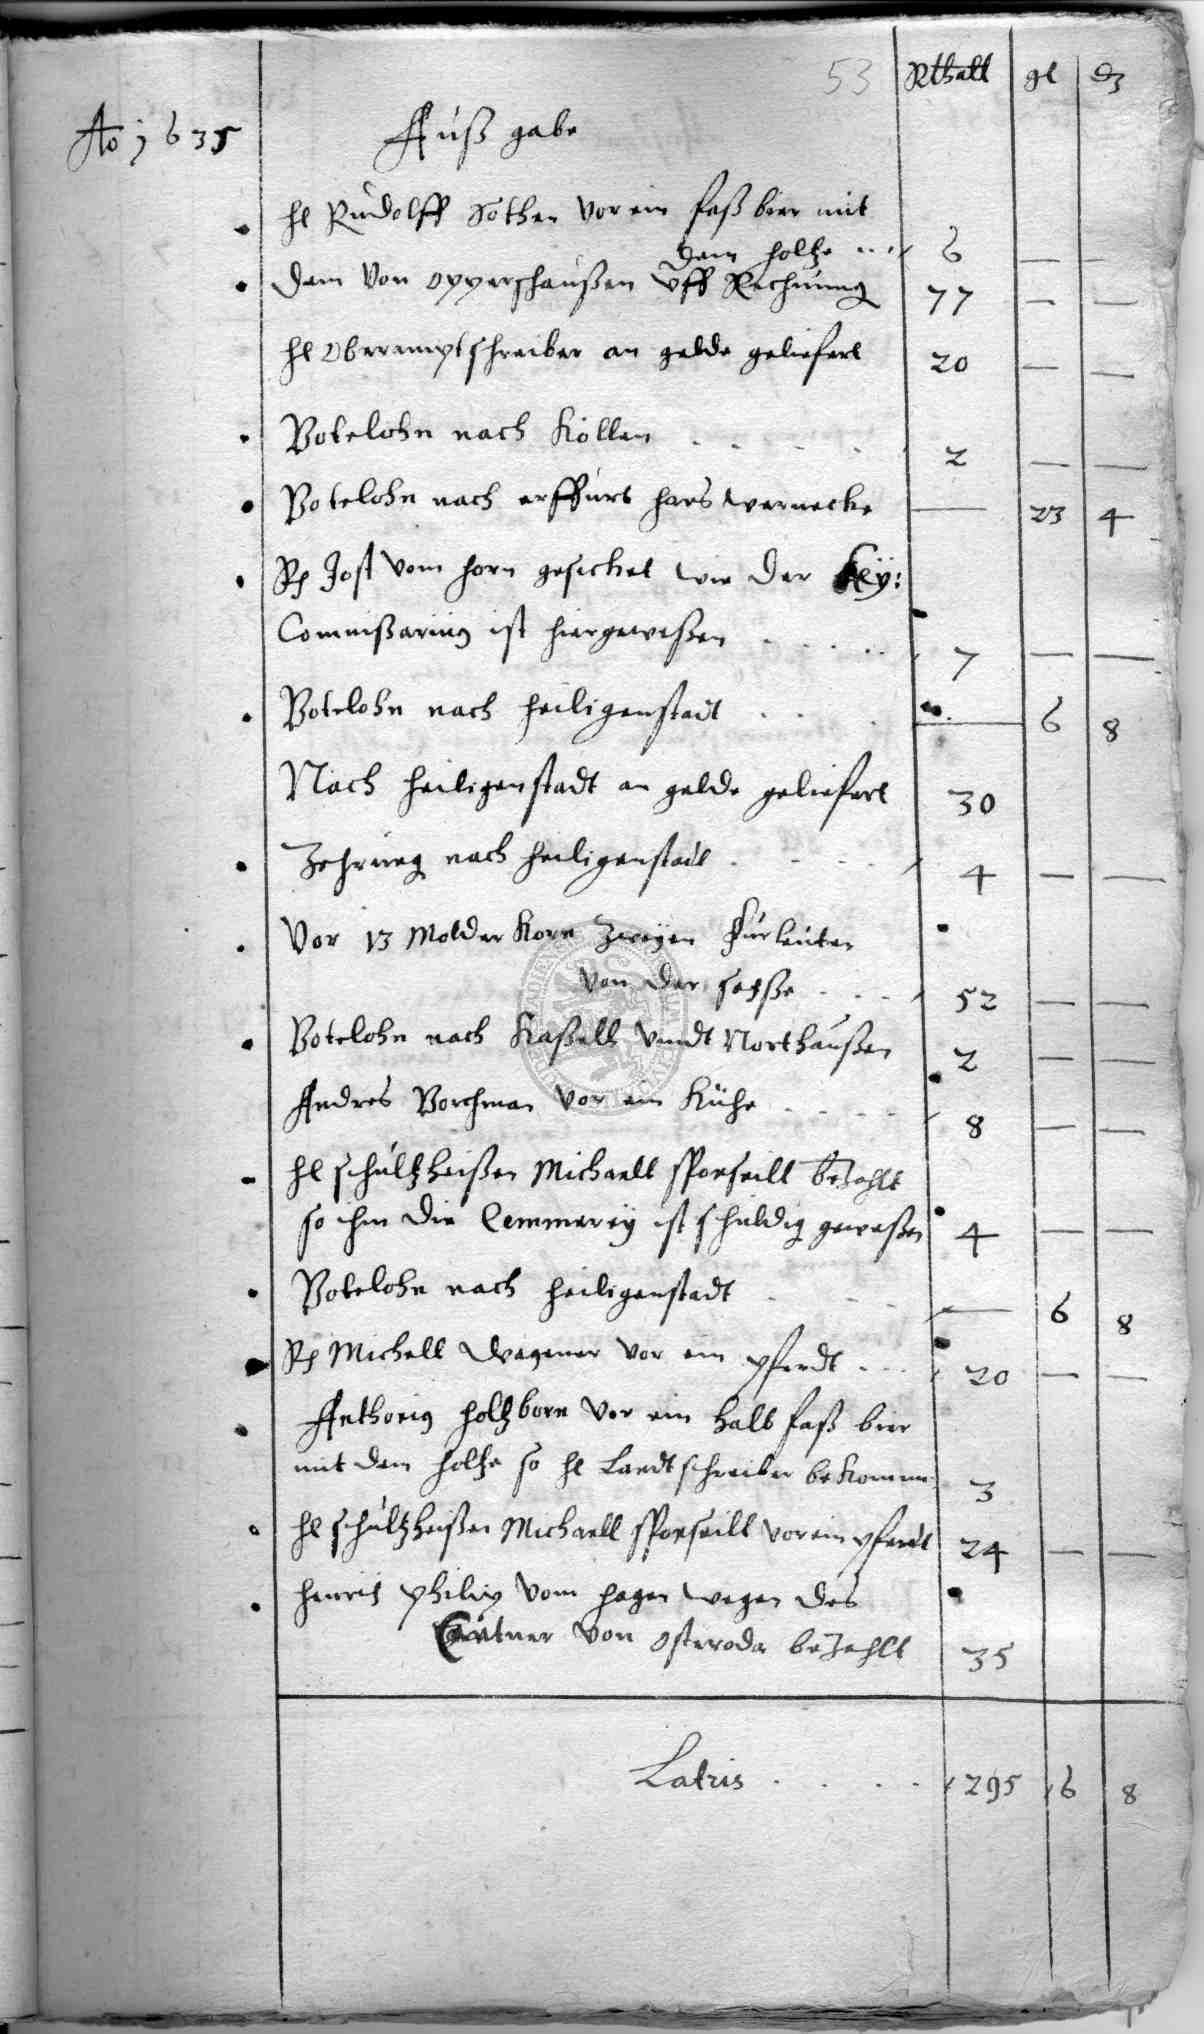 53 Rthall gl d
Ao 1635 Auß gabe
Hl Rudolff Sothen vor ein faß bier mit
dem holtze 6 — —
dem von oppershaußen uff Rechnung 77 — —
Hl Oberamptschreiber an gelde geliefert 20 — —
Botelohn nach Köllen 2 — —
Botelohn nach erffurt hans wernecke — 23 4
Jost vom horn geschicket wie der Key:
Commißarius ist hiergeweßen 7 — —
Botelohn nach heiligenstadt — 6 8
Nach heiligenstadt an gelde geliefert 30
Zehrung nach heiligenstadt 4 — —
Vor 13 Molder Korn zweyen furleuten
von der 52 — —
Botelohn nach Kaßell vnndt Northaußen 2 — —
Andres Borchman vor ein Kuhe 8 — —
Hl schultzheißen Michaell bezahlt
so ihm die Cemmerey ist schuldig geweßen 4 — —
Botelohn nach heiligenstadt — 6 8
Michell Wagener vor ein pferdt 20 — —
Anthonius holtzborn vor ein halb faß bier
mit dem holtze so Hl Landtschreiber bekomme 3
Hl schultzheißen Michaell vor ein pferdt 24 — —
henrich philip vom hagen wegen des
von osteroda bezahlt 35
Latris 295 16 8